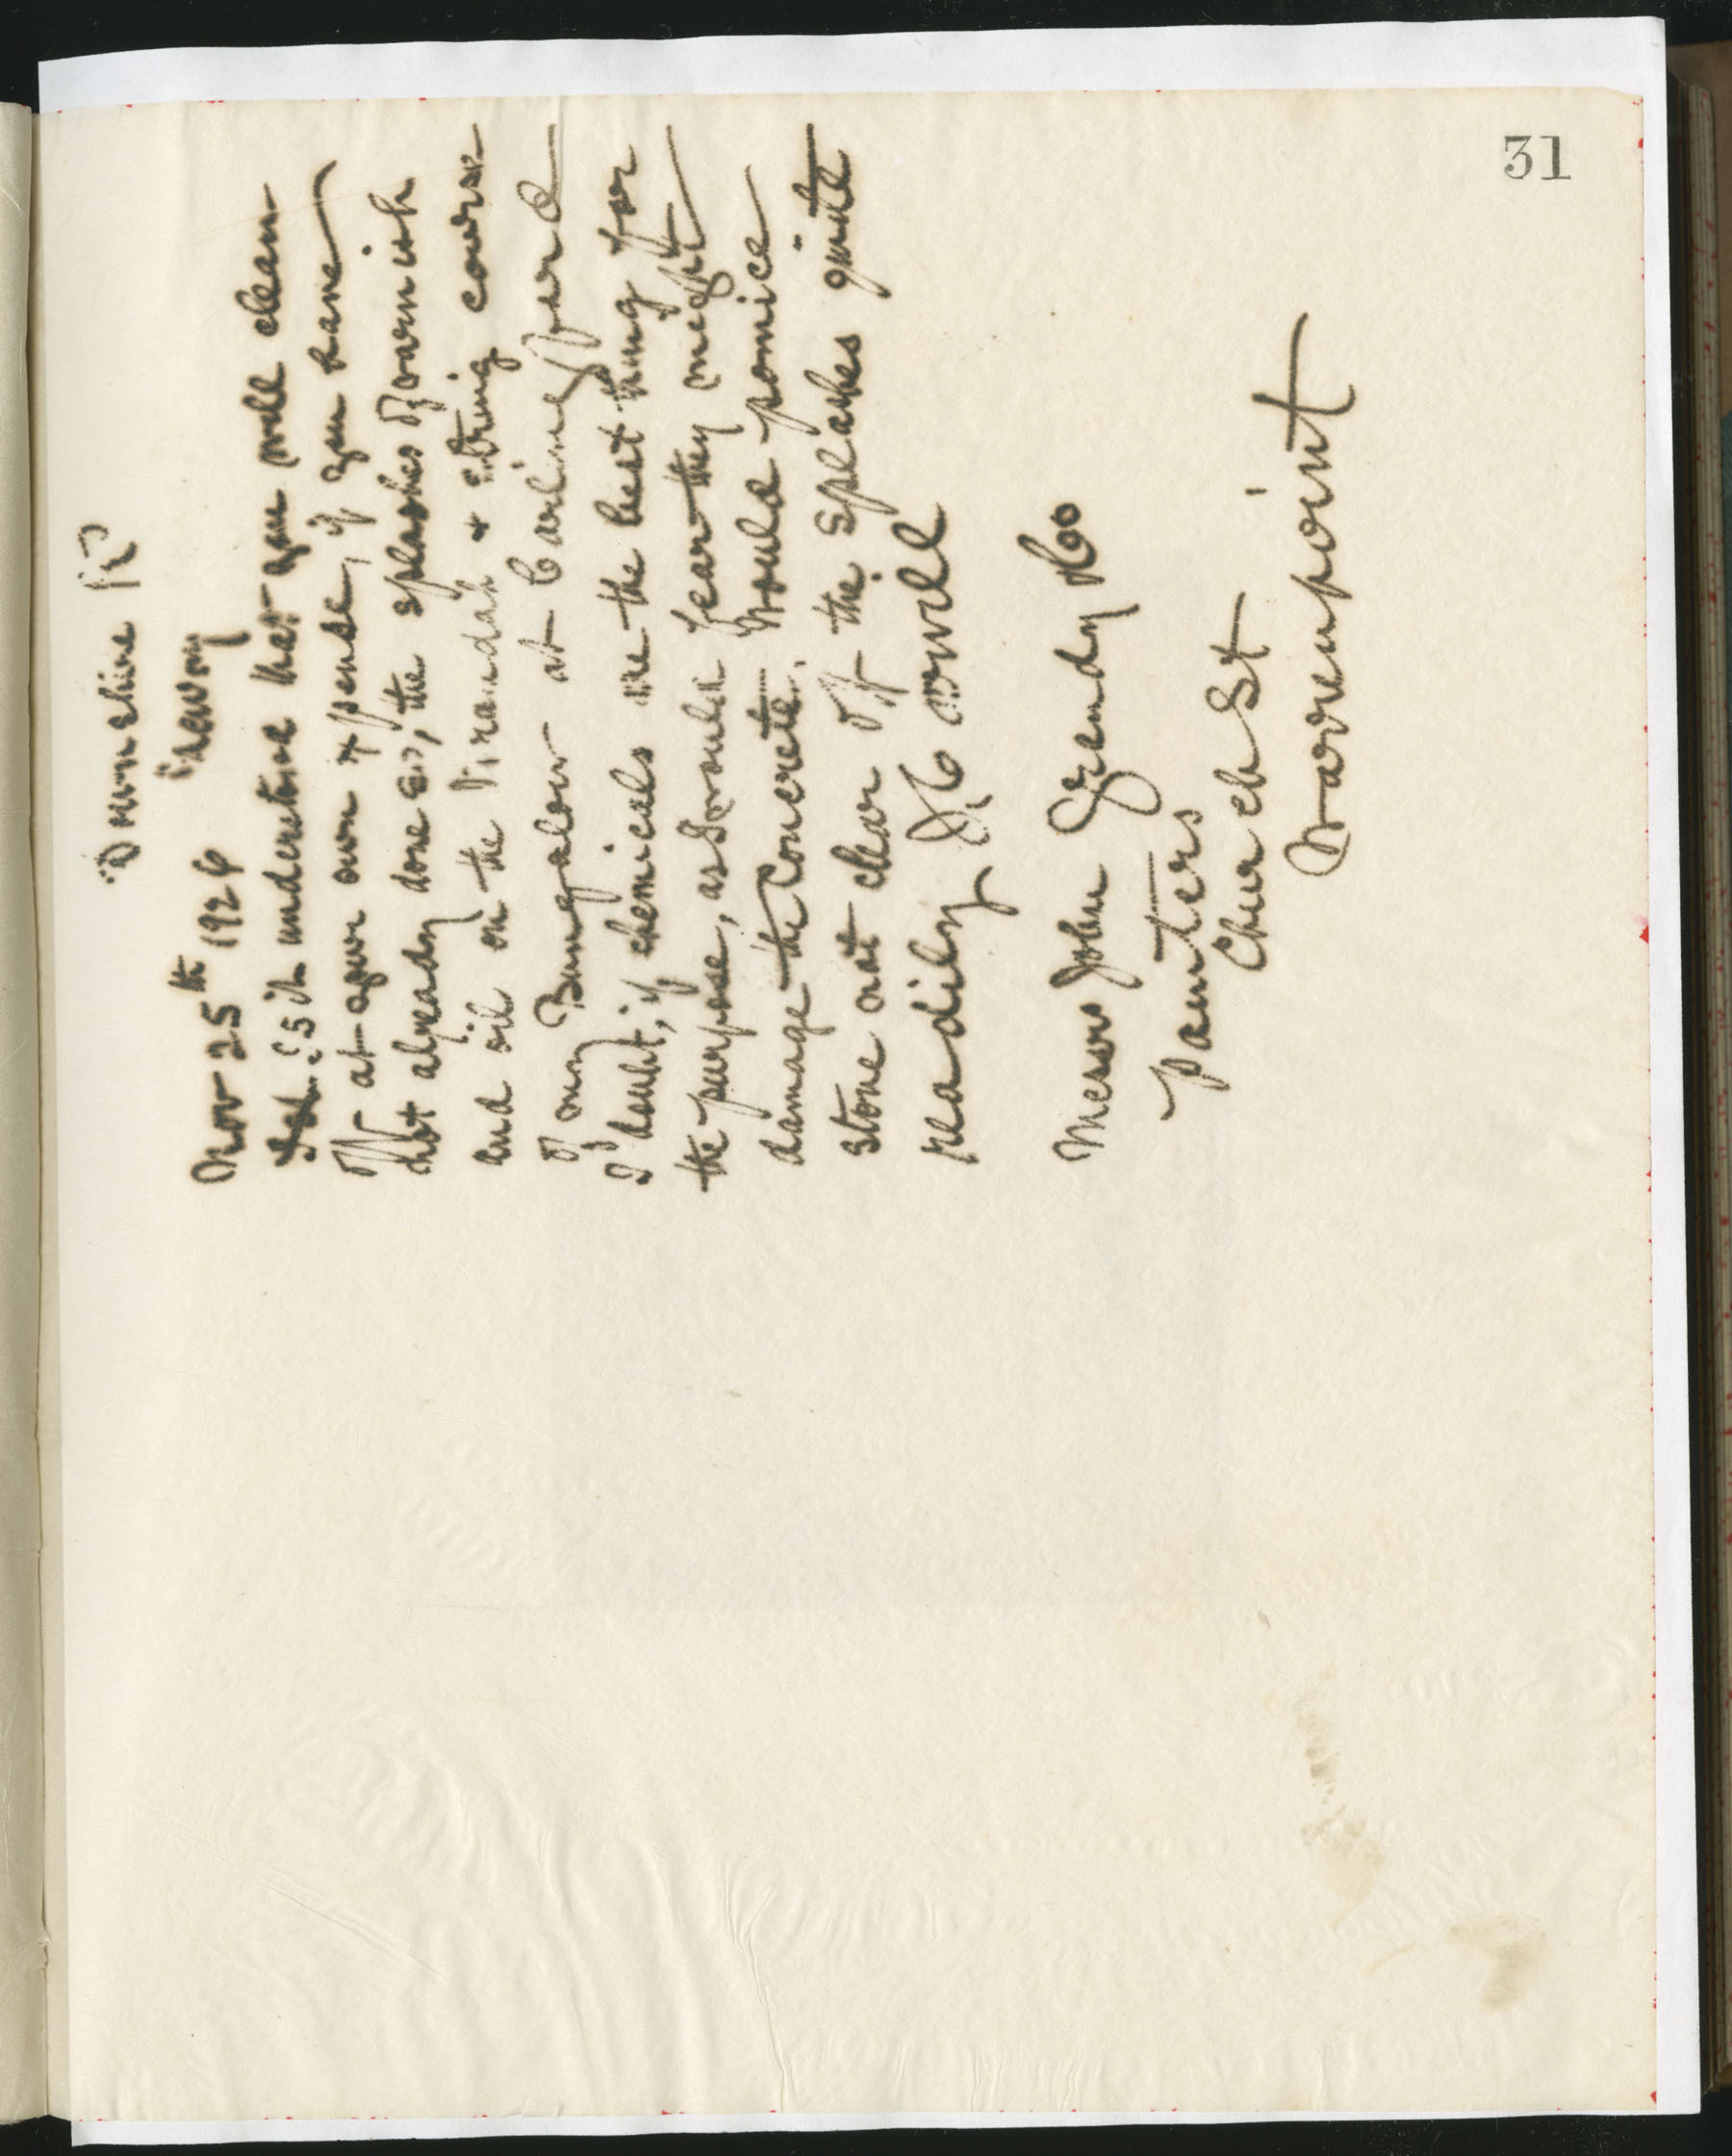 31
Downshire Rd
Newry
Nov 25th 1924
it is understood that you will clean
off at your own expense, if you have
not already done so, the splashes of varnish
and oil on the Verandah & string course
of my Bungalow at Carlingford
I doubt, if chemicals are the best thing for
the purpose, as I would fear they might
damage the Concrete. Would pomice
stone not clear off the splashes quite
readily
Messrs John Grendy & Co
Painters
Church St
Warrenpoint